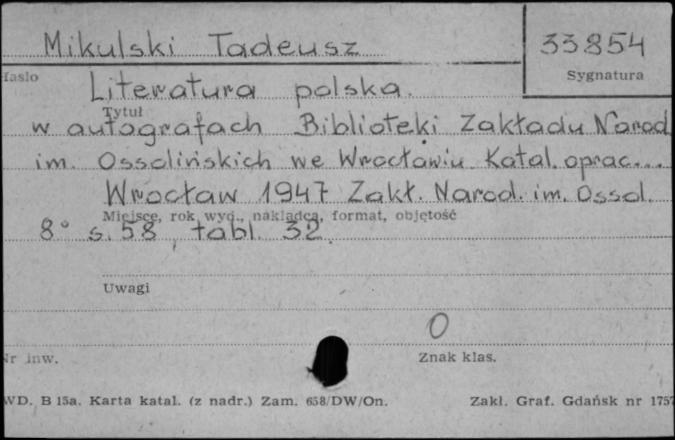 Mikulski Tadeusz
33854
Hasło
Sygnatura
Literatura polska.
Tytuł
w autografach Biblioteki Zakładu Narod
im. Ossolińskich we Wrocławiu Katal. oprac...
Wrocław 1947 Zakł. Narod. im. Ossol.
Miejsce, rok wyd., nakładca, format, objętość
8° s. 58, tabl. 32.
Uwagi
O
Nr inw.
Znak klas.
WD. B 15a. Karta katal. (z nadr.) Zam. 658/DW/On.
Zakł. Graf. Gdańsk nr 1757